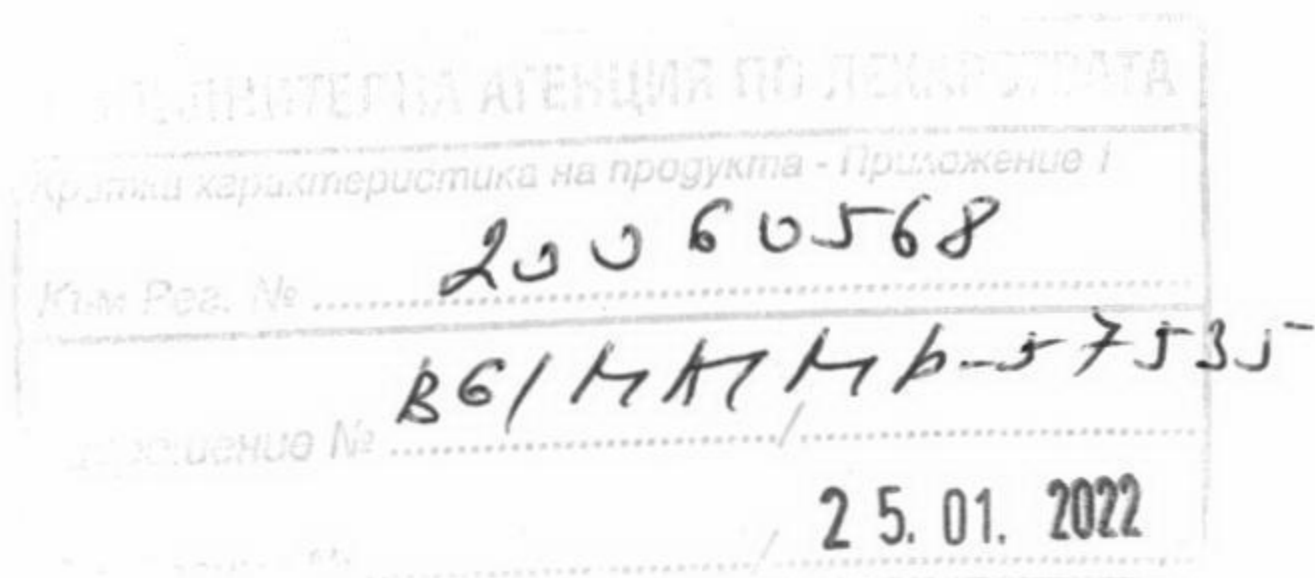 ИЗПЪЛНИТЕЛНА АГЕНЦИЯ ПО ЛЕКАРСТВАТА
Кратка характеристика на продукта - Приложение 1
Към Рег. № 20060568
Разрешение № BG/MA/MP-57535
/ 25. 01. 2022